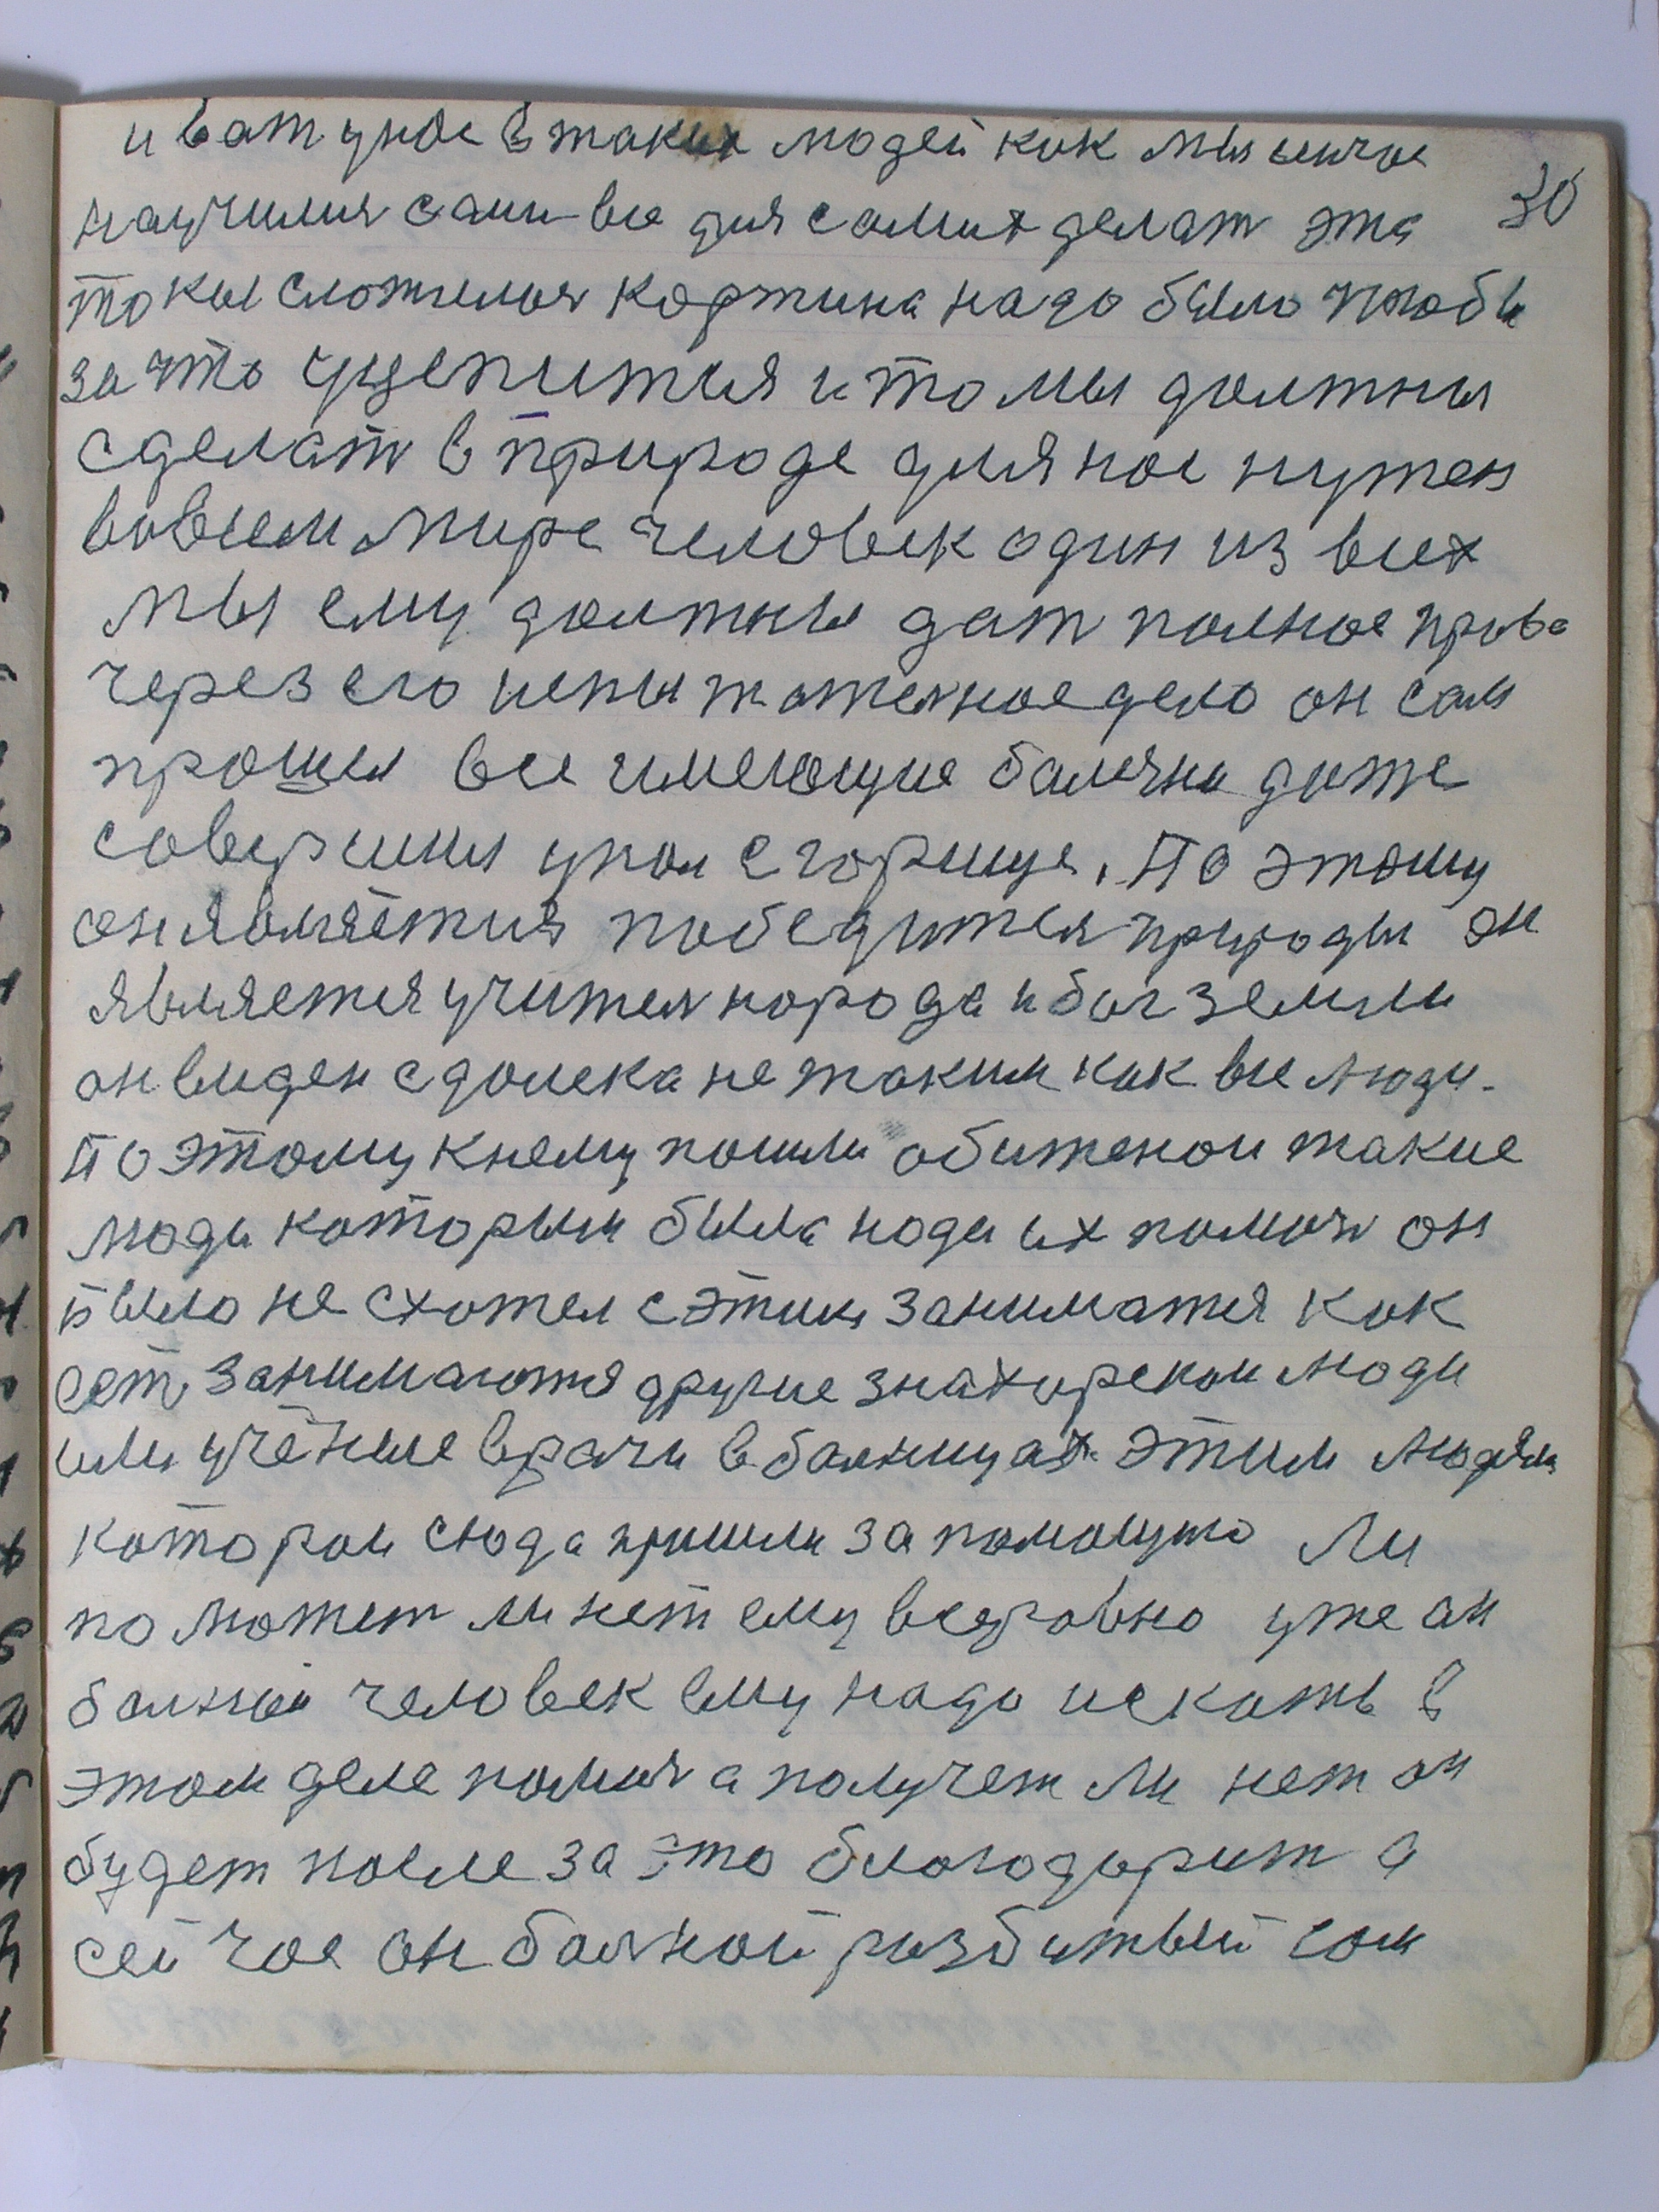 и ват унас в таких людей как мы сичас
научился сами все для самих делат эта
токы сложилося картина надо было чтобы
за что уцепитися и то мы должны
сделать в природе для нас нужен
вовсем мире человек один из всех
мы ему должны дат полное право
через его испытателное дело он сам
прошел все имеющие балячки даже
совершил упал с горища. По этому
он являётися победител природы он
является учител народа и бог земли
он виден сдалека не таким как все люди.
по этому к нему пошли обиженои такие
люди которым была нада их помоч он
было не схотел с этим заниматися как
ест занимаются другие знахарскои люди
или учёные врачи в балницах этим людям
которои сюда пришли за помощию ли
поможет ли нет ему всеравно уже он
балной человек ему надо искать в
этом деле помоч а получет ли нет он
будет после за это благодарит а
сей час он балной разбитый сам
30